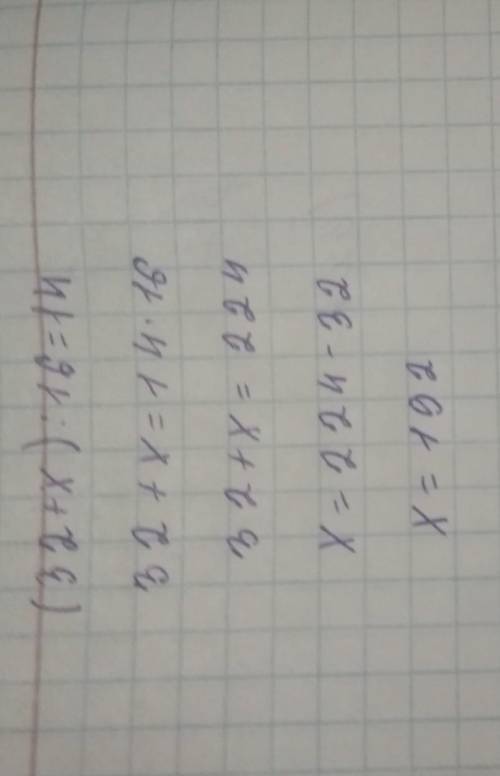 (32+x):16=14
32+x=14·16
32+x=224
x=224-32
x=192